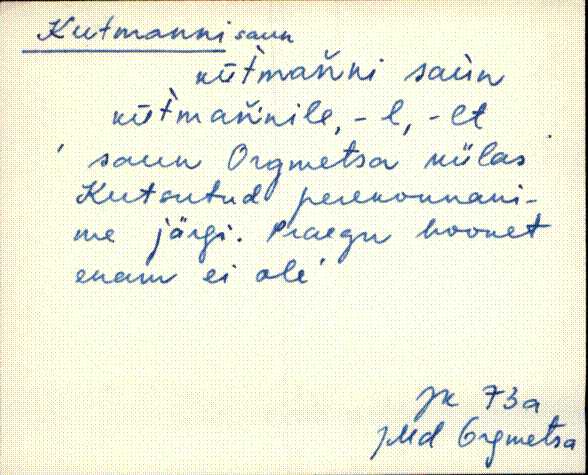 Kutmanni saun
kùtmańni saùn
kùtmańnile, -l, -lt
' saun Orgmetsa külas
Kutsutud perekonnani-
me järgi. Praegu hoonet
enam ei ole '
Jk 73a
JMd Orgmetsa